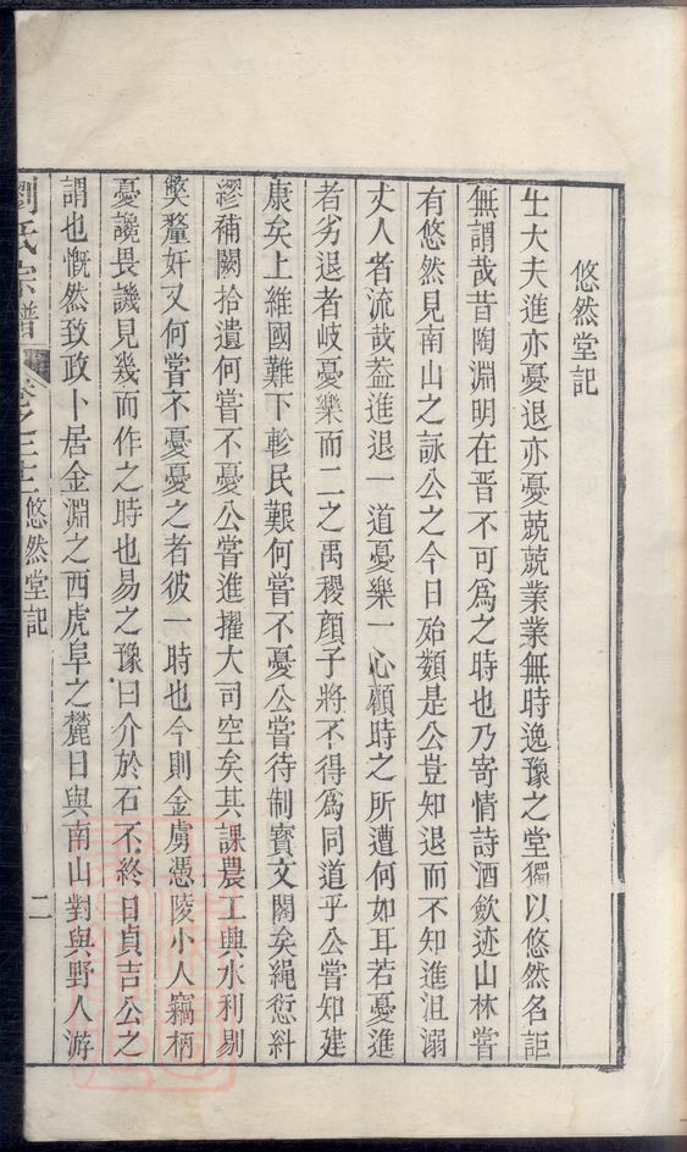 悠然堂記
士大夫進亦憂退亦憂兢兢業業無時逸豫之堂獨以悠然名詎
無謂哉昔陶淵明在晋不可爲之時也乃寄情詩酒斂迹山林嘗
有悠然見南山之詠公之今日殆類是公豈知退而不知進沮溺
丈人者流哉葢進退一道憂樂一心顧時之所遭何如耳若憂進
者劣退者岐憂樂而二之禹稷顔子將不得爲同道乎公嘗知建
康矣上維國難下軫民艱何嘗不憂公嘗待制寶文閣矣繩愆糾
繆補闕拾遺何嘗不憂公嘗進擢大司空矣其課農工興水利剔
弊釐奸又何嘗不憂憂之者彼一時也今則金虜憑陵小人竊柄
憂讒畏譏見幾而作之時也易之豫曰介於石不終日貞吉公之
謂也慨然致政卜居金淵之西虎阜之麓日與南山對與野人游
劉氏宗譜 卷之三十二 悠然堂記 二